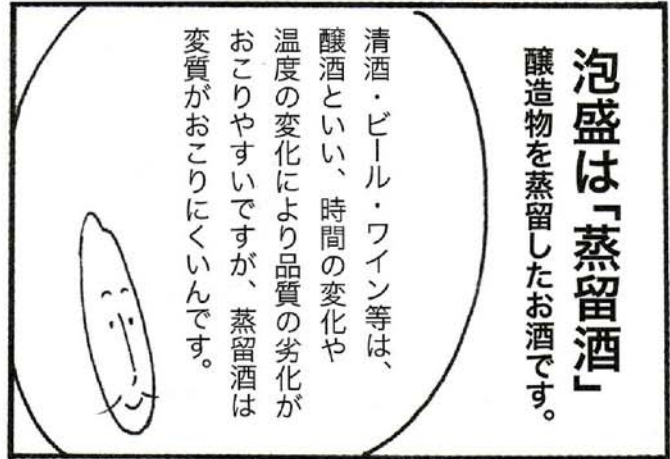 泡盛は「蒸留酒」
醸造物を蒸留したお酒です。
清酒・ビール・ワイン等は、
醸酒といい、時間の変化や
温度の変化により品質の劣化が
おこりやすいですが、蒸留酒は
変質がおこりにくいんです。